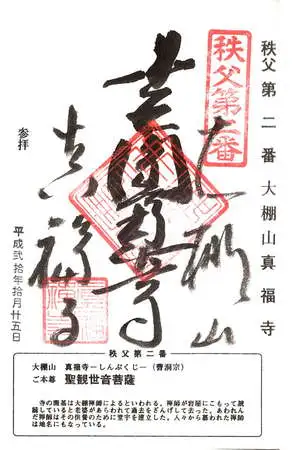 秩父第二番大棚山真福寺
秩父第二番
大棚山
真福寺
参拝
平成弐拾年拾月廿五日
秩父第二番
大棚山 真福寺－しんぷくじ－(曹洞宗)
ご本尊 聖観世音菩薩
寺の開基は大棚禅師によるといわれる。禅師が岩屋にこもって読
誦していると老婆があらわれて過去をざんげして去った。あわれん
だ禅師はその供養のために堂宇を建立した。人々から慕われた禅師
は地名にもなっている。